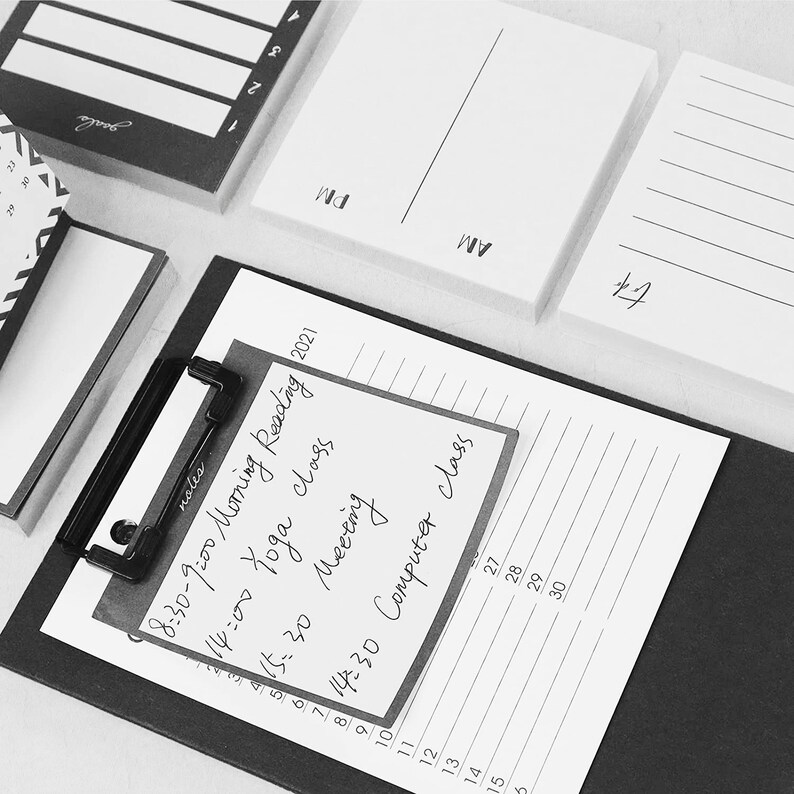 goals
1
2
3
4
PM
AM
to do
23
30
29
2021
notes
8:30-9:00 Morning Reading
14:00 Yoga class
15:30 Meeting
Computer class
27
28
29
30
3
4
5
6
7
8
9
10
11
12
13
14
15